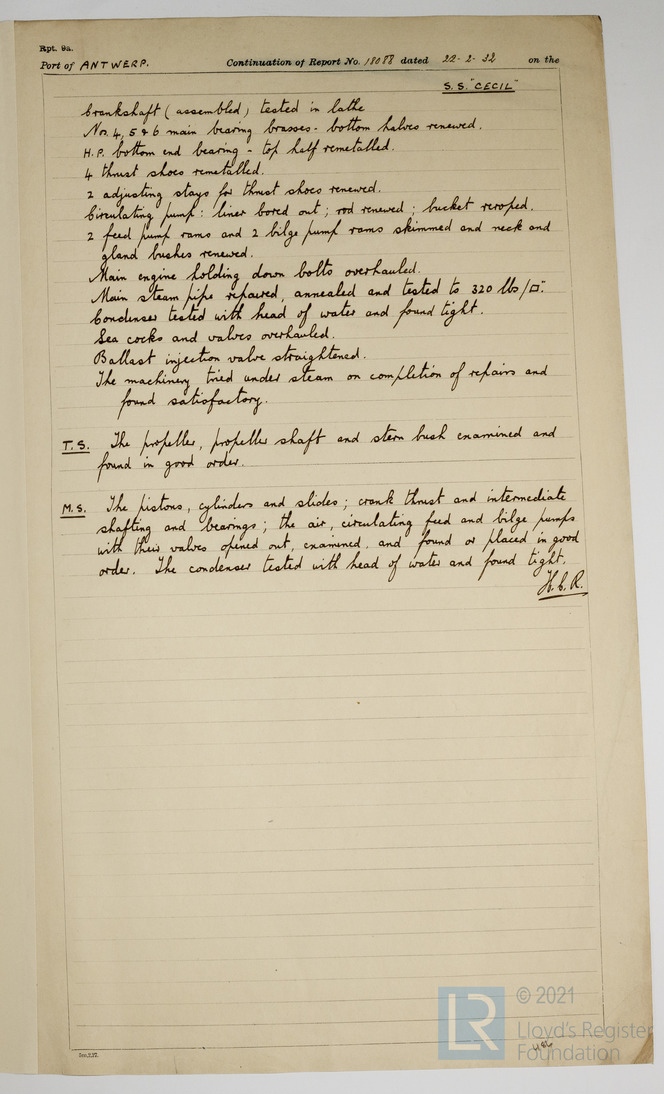 Rpt. 9a.
Port of ANTWERP. Continuation of Report No. 18088 dated 22-2-32 on the
S.S. "CECIL"
Crankshaft (assembled) tested in lathe
Nos. 4, 5 & 6 main bearing brasses - bottom halves renewed.
H.P. bottom end bearing - top half remetalled.
4 thrust shoes remetalled.
2 adjusting stays for thrust shoes renewed.
Circulating pump: liner bored out; rod renewed; bucket reroped.
2 feed pump rams and 2 bilge pump rams skimmed and neck and
gland bushes renewed.
Main engine holding down bolts overhauled.
Main steam pipe repaired, annealed and tested to 320 lbs/□".
Condenser tested with head of water and found tight.
Sea cocks and valves overhauled.
Ballast injection valve straightened.
The machinery tried under steam on completion of repairs and
found satisfactory.
T.S. The propeller, propeller shaft and stern bush examined and
found in good order.
M.S. The pistons, cylinders and slides; crank thrust and intermediate
shafting and bearings; the air, circulating feed and bilge pumps
with their valves opened out, examined, and found or placed in good
order. The condenser tested with head of water and found tight.
H.C.R.
LR © 2021
Lloyd's Register
Foundation